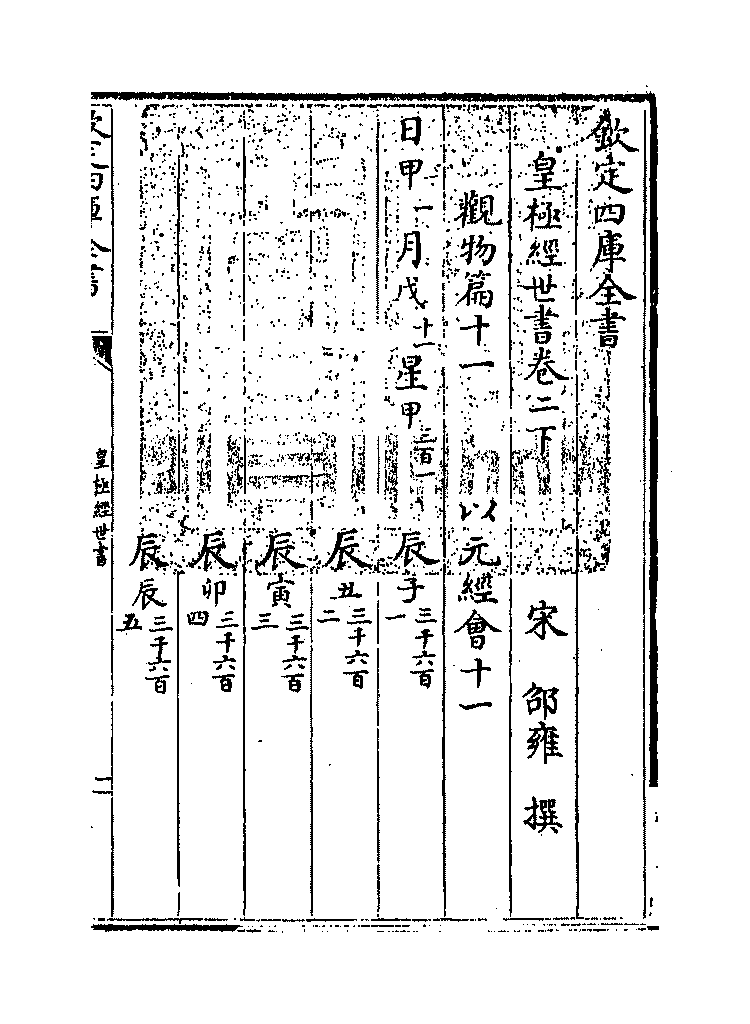 欽定四庫全書
皇極經世書卷二下 宋 邵雍 撰
觀物篇十一 以元經會十一
日甲一月戊十一星甲三百一 辰子三千六百一
辰丑三千六百二
辰寅三千六百三
辰卯三千六百四
辰辰三千六百五
欽定四庫全書
皇極經世書
一